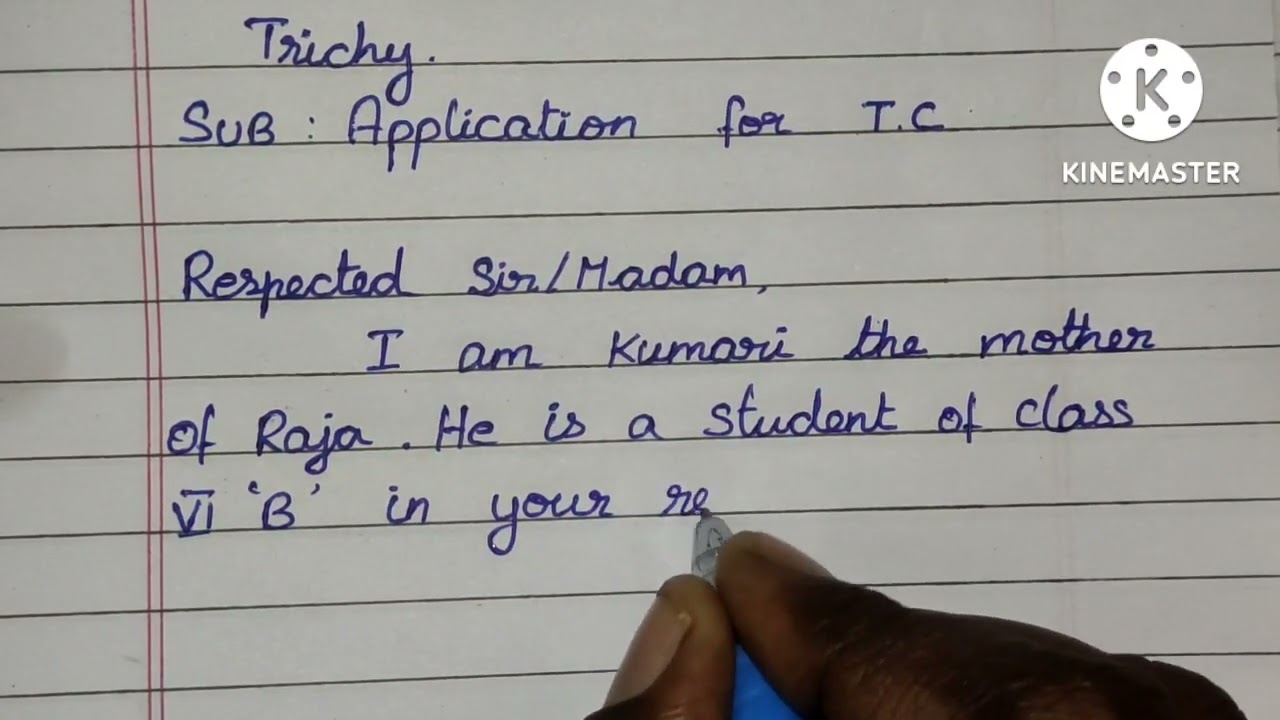 Trichy.
SUB : Application for T.C
K
KINEMASTER
Respected Sir/Madam,
I am Kumari the mother
of Raja. He is a student of class
VI 'B' in your re